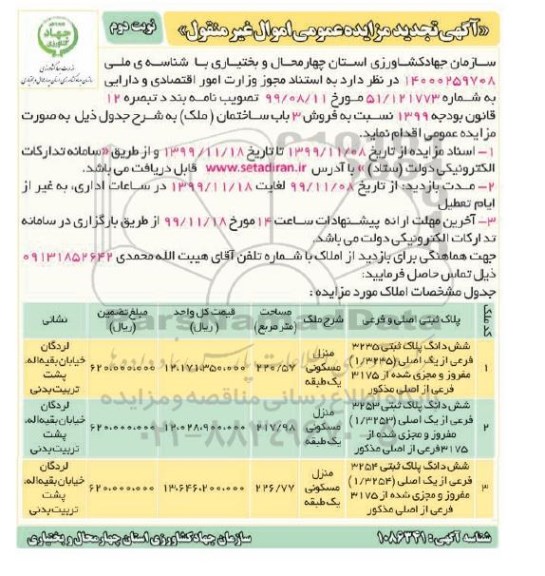 «آگهی تجدید مزایده عمومی اموال غیر منقول»
نوبت دوم
سازمان جهادکشاورزی استان چهارمحال و بختیاری با شناسه ی ملی
۱۴۰۰۰۲۵۹۷۰۸ در نظر دارد به استناد مجوز وزارت امور اقتصادی و دارایی
به شماره ۵۱/۱۲۱۷۷۳ مورخ ۹۹/۰۸/۱۱ تصویب نامه بند د تبصره ۱۲
قانون بودجه ۱۳۹۹ نسبت به فروش ۳ باب ساختمان (ملک) به شرح جدول ذیل به صورت
مزایده عمومی اقدام نماید.
۱- اسناد مزایده از تاریخ ۱۳۹۹/۱۱/۰۸ تا تاریخ ۱۳۹۹/۱۱/۱۸ و از طریق «سامانه تدارکات
الکترونیکی دولت (ستاد)» با آدرس www.setadiran.ir قابل دریافت می باشد.
۲- مدت بازدید: از تاریخ ۹۹/۱۱/۰۸ لغایت ۱۳۹۹/۱۱/۱۸ در ساعات اداری، به غیر از
ایام تعطیل
۳- آخرین مهلت ارائه پیشنهادات ساعت ۱۴ مورخ ۹۹/۱۱/۱۸ از طریق بارگزاری در سامانه
تدارکات الکترونیکی دولت می باشد.
جهت هماهنگی برای بازدید از املاک با شماره تلفن آقای هیبت الله محمدی ۰۹۱۳۱۸۵۲۶۴۲
ذیل تماس حاصل فرمایید:
جدول مشخصات املاک مورد مزایده:
کد ملک پلاک ثبتی اصلی و فرعی شرح ملک مساحت (متر مربع) قیمت کل واحد (ریال) مبلغ تضمین (ریال) نشانی
۱ شش دانگ پلاک ثبتی ۳۲۴۵ فرعی از یک اصلی (۱/۳۲۴۵) مفروز و مجزی شده از ۳۱۷۵ فرعی از اصلی مذکور منزل مسکونی یک طبقه ۲۲۰/۵۷ ۱۲.۱۷۱.۳۵۰.۰۰۰ ۶۲۰.۰۰۰.۰۰۰ لردگان خیابان بقیه اله. پشت تربیت بدنی
۲ شش دانگ پلاک ثبتی ۳۲۵۳ فرعی از یک اصلی (۱/۳۲۵۳) مفروز و مجزی شده از ۳۱۷۵ فرعی از اصلی مذکور منزل مسکونی یک طبقه ۲۱۷/۹۸ ۱۲.۰۲۸.۹۰۰.۰۰۰ ۶۲۰.۰۰۰.۰۰۰ لردگان خیابان بقیه اله. پشت تربیت بدنی
۳ شش دانگ پلاک ثبتی ۳۲۵۴ فرعی از یک اصلی (۱/۳۲۵۴) مفروز و مجزی شده از ۳۱۷۵ فرعی از اصلی مذکور منزل مسکونی یک طبقه ۲۲۶/۷۷ ۱۳.۶۴۶.۲۰۰.۰۰۰ ۶۲۰.۰۰۰.۰۰۰ لردگان خیابان بقیه اله. پشت تربیت بدنی
شناسه آگهی: ۱۰۸۶۳۴۱
سازمان جهاد کشاورزی استان چهارمحال و بختیاری